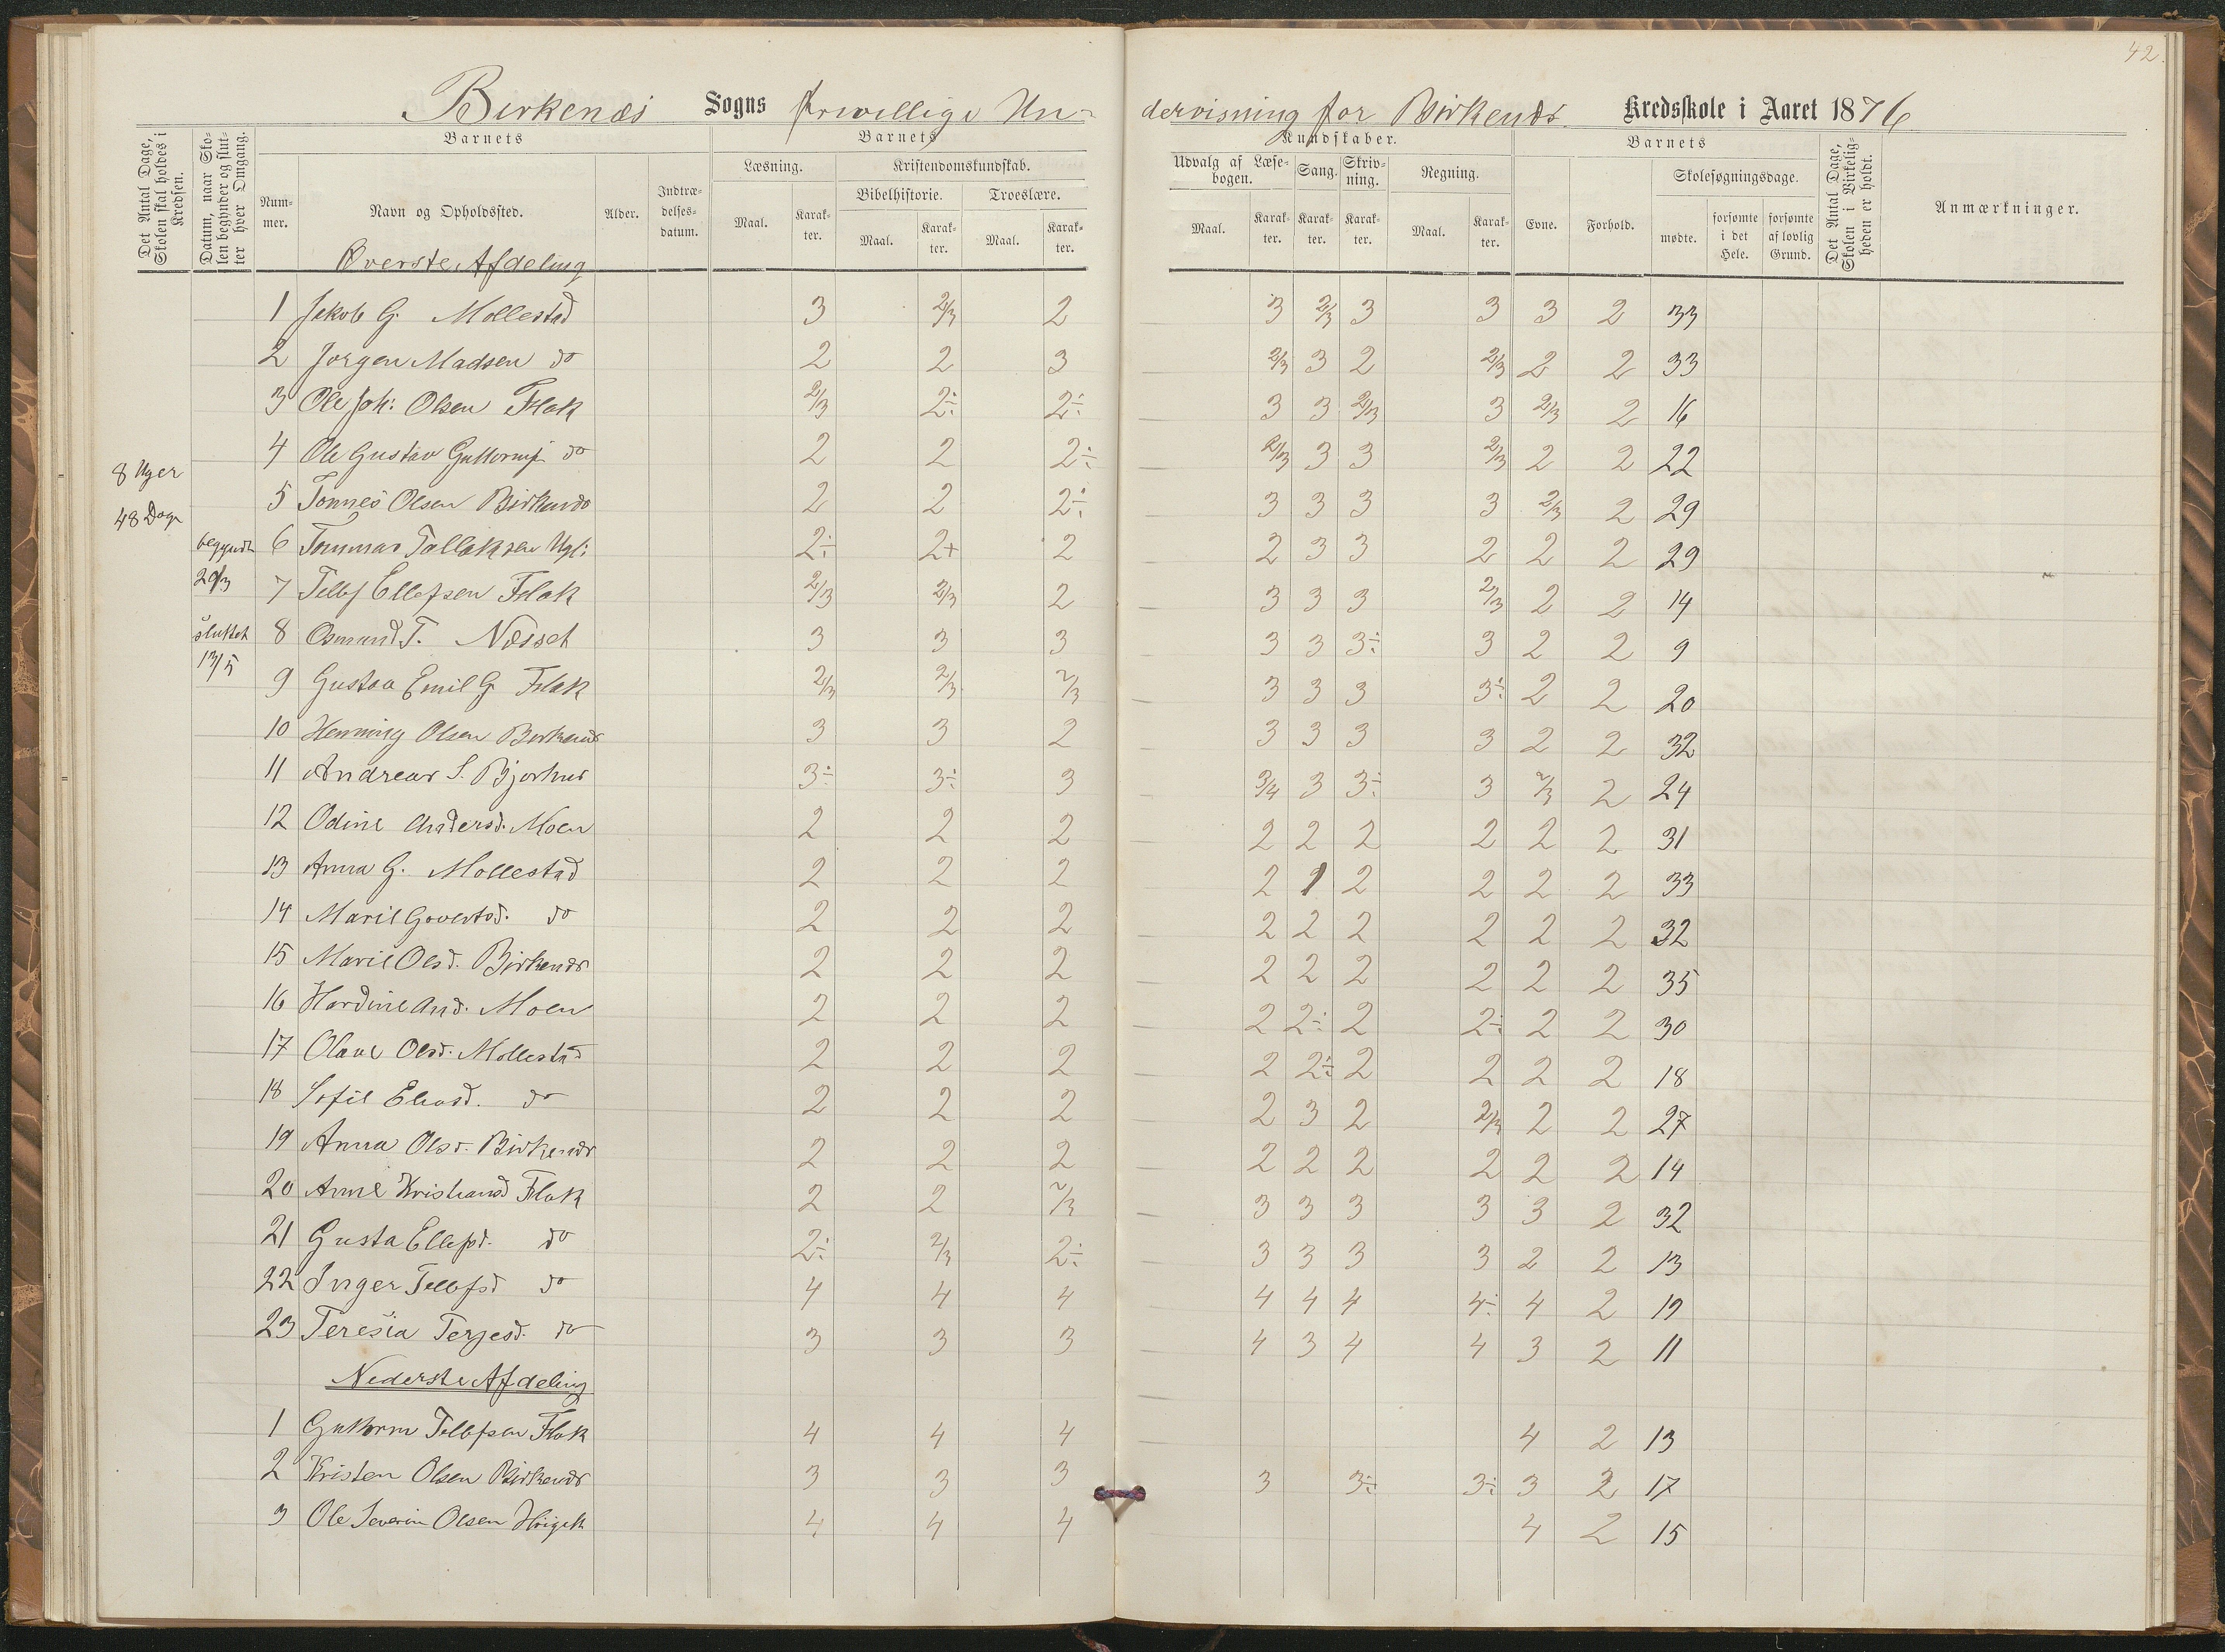 42.
Birkenæs Sogns frivillige Un-dervisning for Birkenæs Kredsskole i Aaret 1876
Det Antal Dage, Skolen skal holdes i Kredsen.
Datum, naar Skolen begynder og slutter hver Omgang.
Barnets
Nummer. Navn og Opholdssted. Alder. Indtrædelsesdatum.
Barnets Kundskaber.
Læsning. Maal. Karakter.
Kristendomskundskab.
Bibelhistorie. Maal. Karakter.
Troeslære. Maal. Karakter.
Udvalg af Læsebogen. Maal. Karakter.
Sang. Karakter.
Skrivning. Karakter.
Regning. Maal. Karakter.
Barnets
Evne. Forhold.
Skolesøgningsdage.
mødte. forsømte i det Hele. forsømte af lovlig Grund.
Det Antal Dage, Skolen i Virkeligheden er holdt.
Anmærkninger.
Øverste Afdeling
1 Jakob G. Mollestad 3 2/3 2 3 2/3 3 3 3 2 33
2 Jørgen Madsen do 2 2 3 2/3 3 2 2/3 2 2 33
3 Ole Joh: Olsen Flak 2/3 2÷ 2÷ 3 3 2/3 3 2/3 2 16
4 Ole Gustav Guttormf do 2 2 2÷ 2/3 3 3 2/3 2 2 22
8 Uger
48 Dage
5 Tønnes Olsen Birkenæs 2 2 2÷ 3 3 3 3 2/3 2 29
begyndt 29/3
6 Tommas Tallaksen Ugl: 2÷ 2+ 2 2 3 3 2 2 2 29
7 Tellef Ellefsen Flak 2/3 2/3 2 3 3 3 2/3 2 2 14
sluttet 13/5
8 Osmund T. Næsset 3 3 3 3 3 3÷ 3 2 2 9
9 Gustav Emil G Flak 2/3 2/3 2/3 3 3 3 3÷ 2 2 20
10 Henning Olsen Birkenæs 3 3 2 3 3 3 3 2 2 32
11 Andreas S. Bjorhus 3÷ 3÷ 3 3/4 3 3÷ 3 2/3 2 24
12 Odine Andersd. Moen 2 2 2 2 2 2 2 2 2 31
13 Anna G. Mollestad 2 2 2 2 1 2 2 2 2 33
14 Marie Govertsd. do 2 2 2 2 2 2 2 2 2 32
15 Marie Olsd. Birkenæs 2 2 2 2 2 2 2 2 2 35
16 Hardine And. Moen 2 2 2 2 2÷ 2 2÷ 2 2 30
17 Olave Olsd. Mollestad 2 2 2 2 2÷ 2 2 2 2 18
18 Sofie Eliasd. do 2 2 2 2 3 2 2/3 2 2 27
19 Anna Olsd. Birkenæs 2 2 2 2 2 2 2 2 2 14
20 Anne Kristiansd Flak 2 2 2/3 3 3 3 3 3 2 32
21 Gusta Ellefsd. do 2÷ 2/3 2÷ 3 3 3 3 2 2 13
22 Inger Tellefsd do 4 4 4 4 4 4 4÷ 4 2 19
23 Teresia Terjesd. do 3 3 3 4 3 4 4 3 2 11
Nederste Afdeling
1 Guttorm Tellefsen Flak 4 4 4 4 2 13
2 Kristen Olsen Birkenæs 3 3 3 3 3÷ 3÷ 3 2 17
3 Ole Severin Olsen 4 4 4 4 2 15